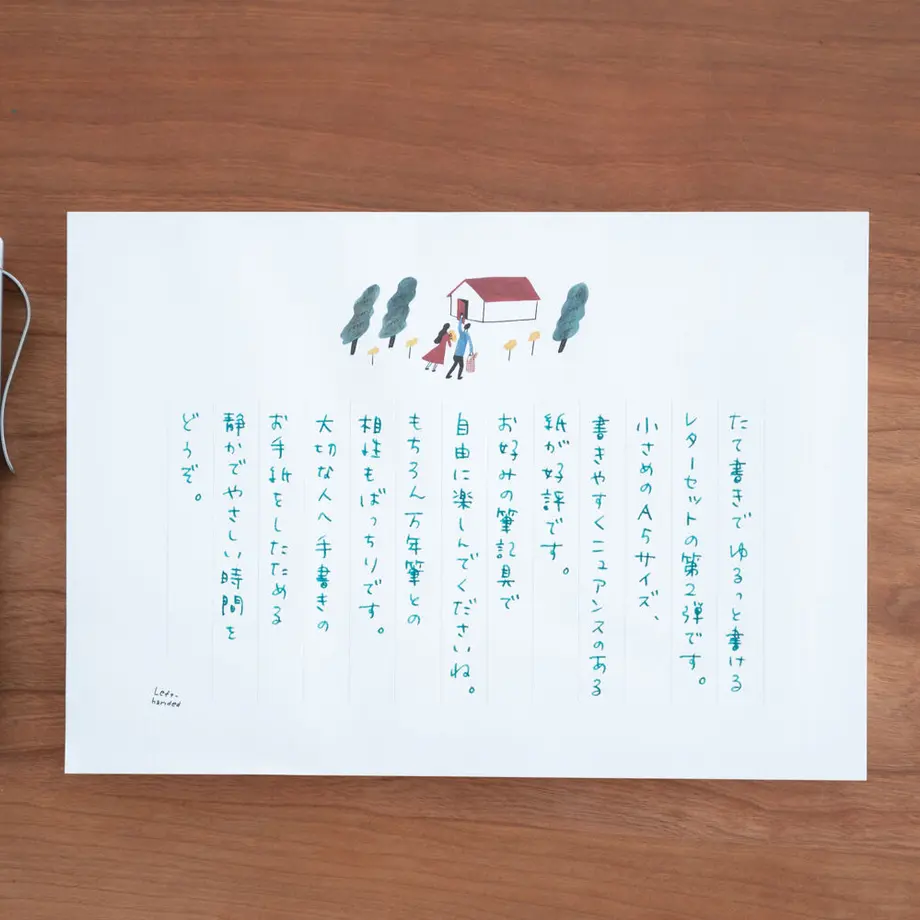 たて書きで ゆるっと書ける
レターセットの第2弾です。
小さめのA5サイズ、
書きやすくニュアンスのある
紙が好評です。
お好みの筆記具で
自由に楽しんでくださいね。
もちろん万年筆との
相性もばっちりです。
大切な人へ手書きの
お手紙をしたためる
静かでやさしい時間を
どうぞ。
Left-
handed